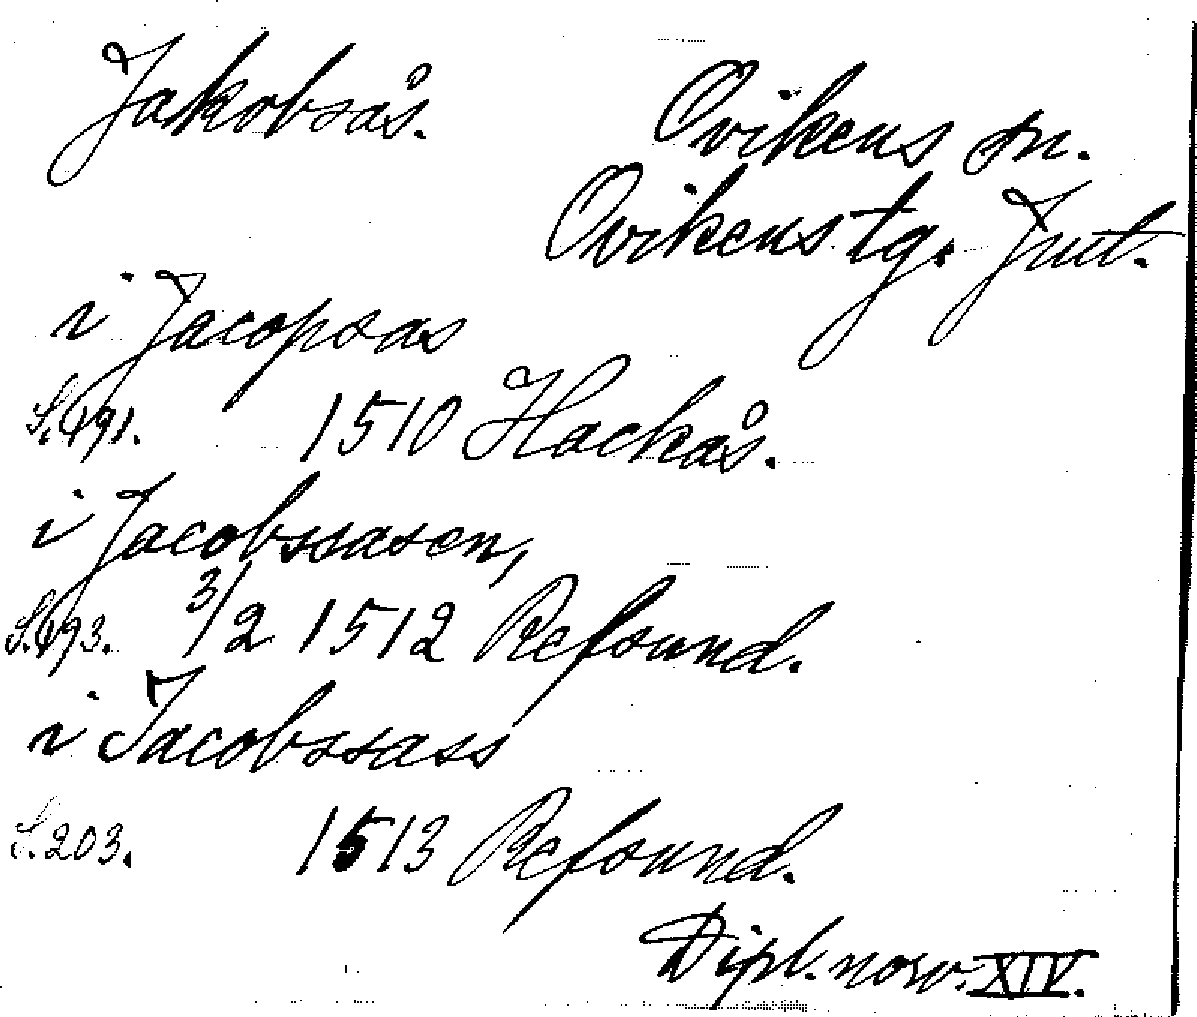 Jakobsås. Ovikens sn.
Ovikens tg. Jmt.
i Jacopsas
S. 191. 1510 Hackås.
i Jacobssasen,
S. 193. 3/2 1512 Refsund.
i Jacobssass
S. 203. 1513 Refsund.
Dipl. norv. XIV.